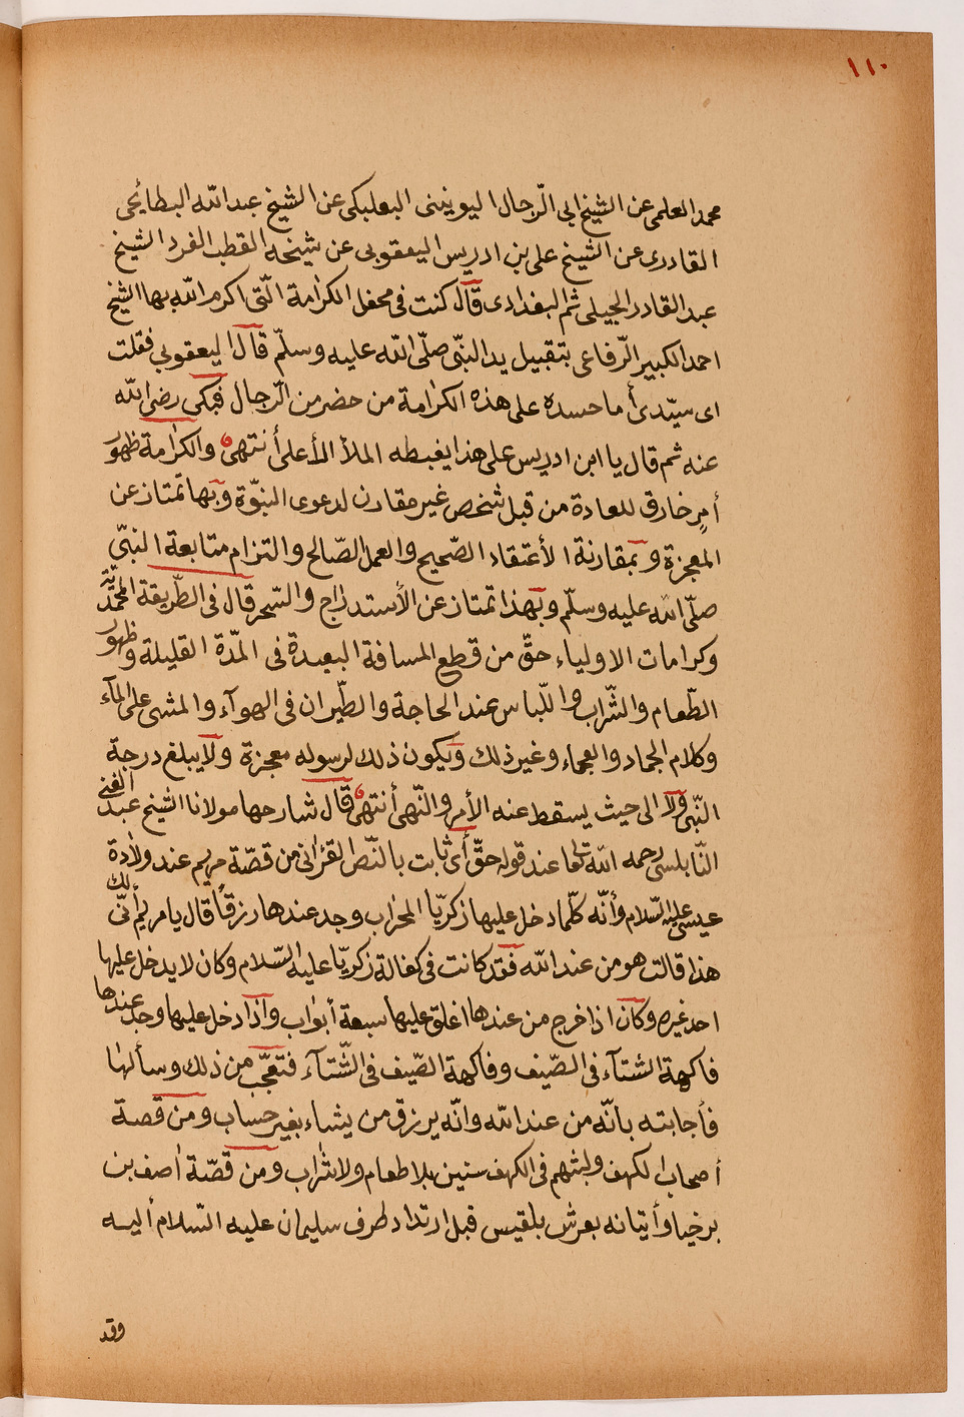 ١١٠
محمد العلمى عن الشيخ ابى الرّجال اليونينى البعلبكى عن الشيخ عبد الله البطائحى
القادرى عن الشيخ على بن ادريس اليعقوبى عن شيخه القطب الفرد الشيخ
عبد القادر الجيلى ثم البغدادى قال كنت فى محفل الكرامة الّتى اكرم الله بها الشيخ
احمد الكبير الرّفاعى بتقبيل يد النبّى صلّى الله عليه وسلّم قال اليعقوبى فقلت
اى سيّدىأ ما حسده على هذه الكرامة من حضر من الرّجال فبكى رضى الله
عنه ثم قال يا ابن ادريس على هذا يغبطه الملأ الأعلى أنتهى والكرامة ظهور
أمرٍ خارق للعادة من قبل شخص غير مقارن لدعوى النبوّة وبها تمتاز عن
المعجزة وبمقارنة الأعتقاد الصّحيح والعمل الصّالح والتزام متابعة النبّى
صلّى الله عليه وسلّم وبهذا تمتاز عن الأستدراج والسّحر قال فى الطّريقة المحمّديّة
وكرامات الاولياء حقّ من قطع المسافة البعيدة فى المدّة القليلة وظهور
الطّعام والشّراب واللّباس عند الحاجة والطّيران فى الهوآء والمشى على المآء
وكلام الجماد والعجماء وغير ذلك ويكون ذلك لرسوله معجزة ولا يبلغ درجة
النّبى ولا الى حيث يسقط عنه الأمر والنّهى أنتهى قال شارحها مولانا الشيخ عبد الغنى
النّابلسى رحمه الله تعا عند قوله حقّ أى ثابت بالنّص القرٰانى من قصّة مريم عند ولادة
عيسى عليه السّلام وأنّه كلّما دخل عليها زكريّا المحراب وجد عندها رزقًا قال يا مريم أنّى لك
هذا قالت هو من عند الله فقد كانت فى كفالة زكريّا عليه السّلام وكان لا يدخل عليها
احد غيره وكان اذا خرج من عندها اغلق عليها سبعة أبواب واذا دخل عليها وجد عندها
فاكهة الشتآء فى الصّيف وفاكهة الصّيف فى الشّتآء فتعجّب من ذلك وسألها
فأجابته بانّه من عند الله وانّه يرزق من يشاء بغير حساب ومن قصة
أصحاب الكهف ولبثهم فى الكهف سنين بلا طعام ولا شراب ومن قصّة اٰصف بن
برخيا وأيتانه بعرش بلقيس قبل ارتداد طرف سليمان عليه السّلام أليه
وقد